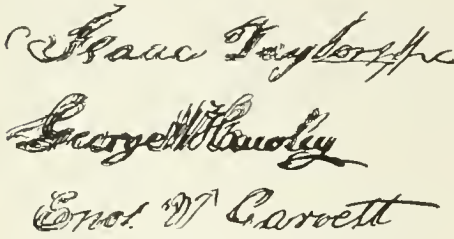 Isaac Taylor
George W Hawley
Enos W Carvett